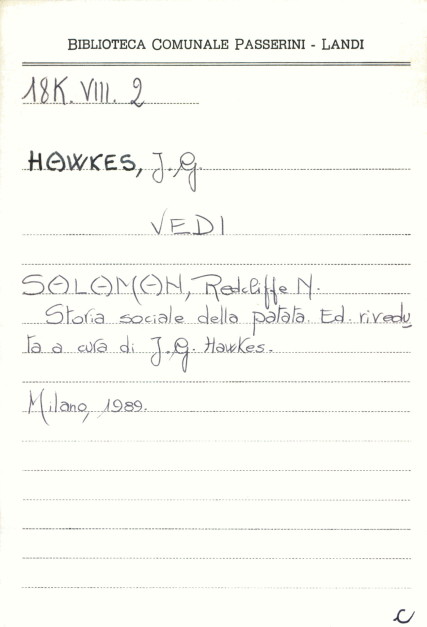 BIBLIOTECA COMUNALE PASSERINI - LANDI
18K. VIII. 2
HAWKES, J.G.
VEDI
SALAMAN, Redcliffe N.
Storia sociale della patata. Ed. rivedu
ta a cura di J.G. Hawkes.
Milano, 1989.
C